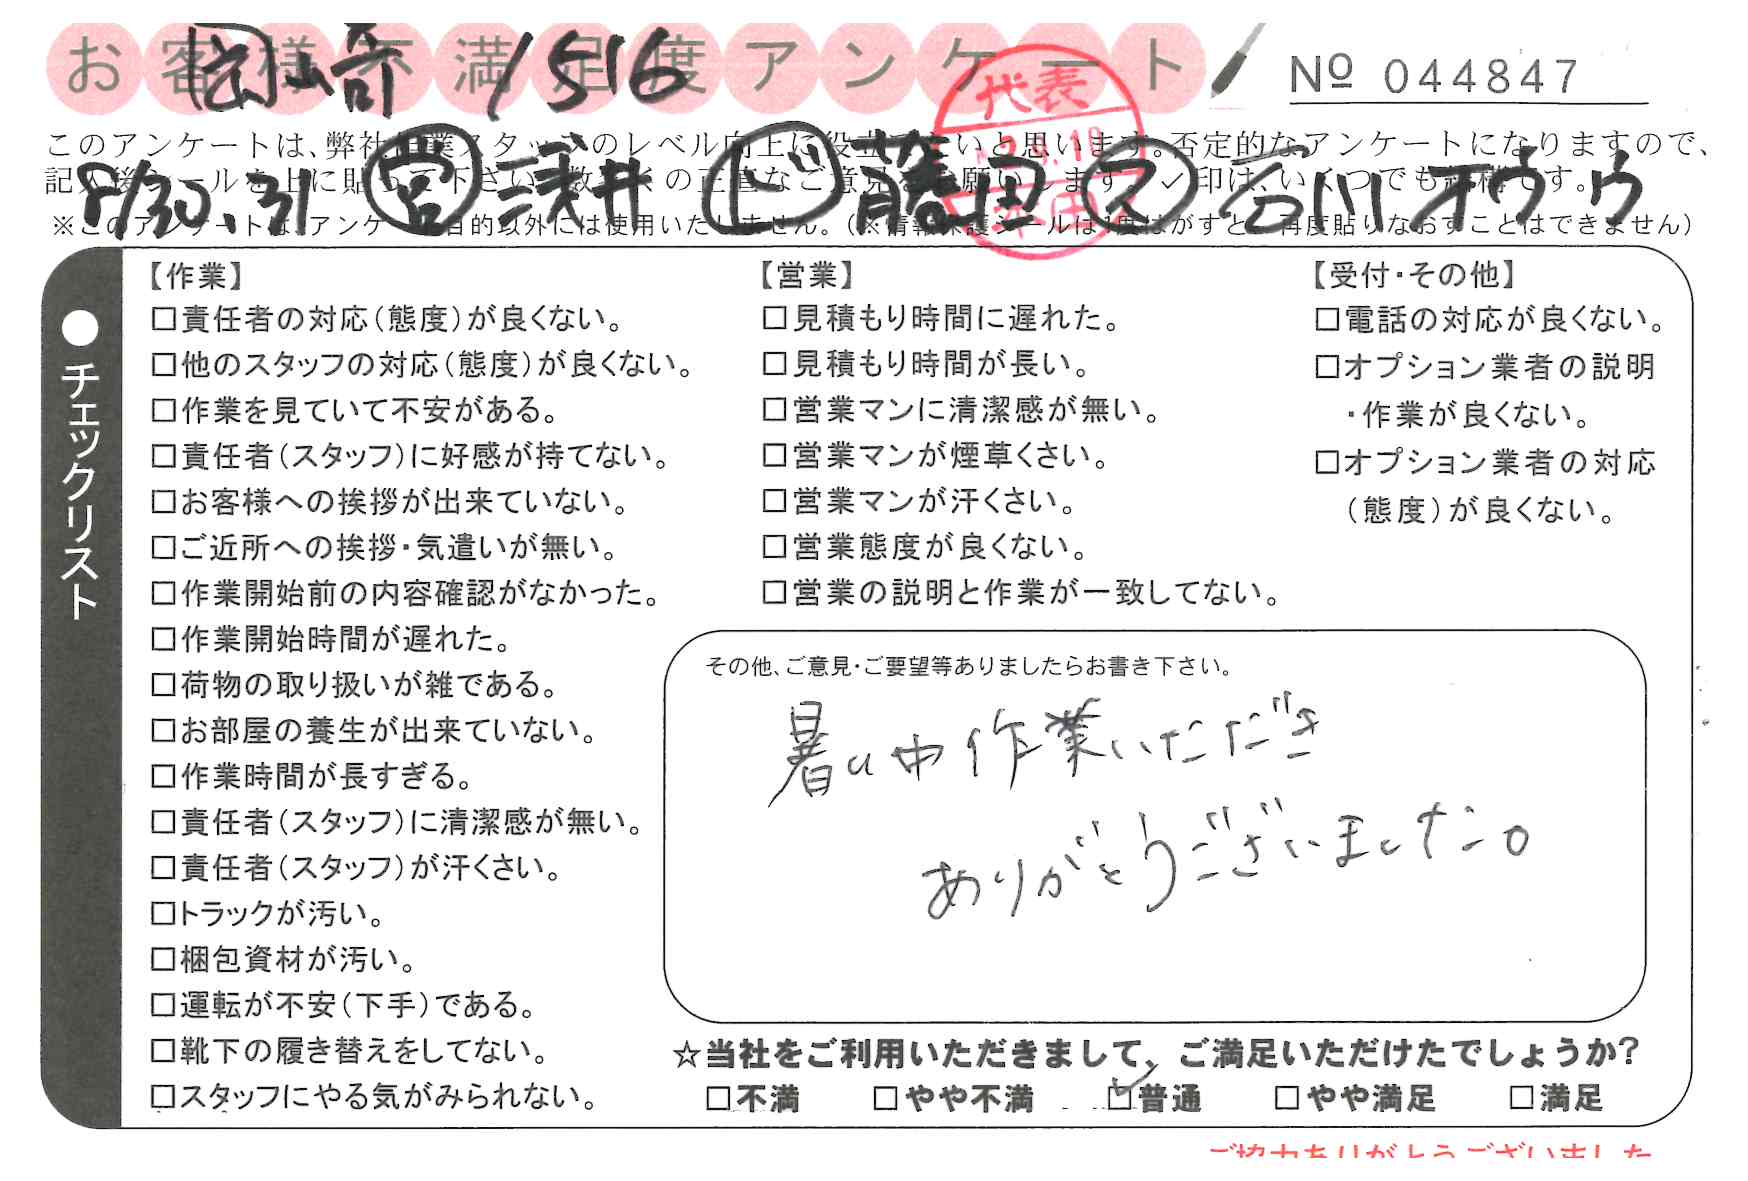 お客様不満足度アンケート
岡崎 1516
№ 044847
このアンケートは、弊社作業スタッフのレベル向上に役立てたいと思います。否定的なアンケートになりますので、
記入後シールを上に貼って下さい。数多くの正直なご意見をお願いします。✓印は、いくつでも結構です。
8/30.31 営 浅井 ド 藤田 ス 石川
※このアンケートは、アンケート目的以外には使用いたしません。(※情報保護シールは1度はがすと、再度貼りなおすことはできません)
代表
●チェックリスト
【作業】
□責任者の対応(態度)が良くない。
□他のスタッフの対応(態度)が良くない。
□作業を見ていて不安がある。
□責任者(スタッフ)に好感が持てない。
□お客様への挨拶が出来ていない。
□ご近所への挨拶・気遣いが無い。
□作業開始前の内容確認がなかった。
□作業開始時間が遅れた。
□荷物の取り扱いが雑である。
□お部屋の養生が出来ていない。
□作業時間が長すぎる。
□責任者(スタッフ)に清潔感が無い。
□責任者(スタッフ)が汗くさい。
□トラックが汚い。
□梱包資材が汚い。
□運転が不安(下手)である。
□靴下の履き替えをしてない。
□スタッフにやる気がみられない。
【営業】
□見積もり時間に遅れた。
□見積もり時間が長い。
□営業マンに清潔感が無い。
□営業マンが煙草くさい。
□営業マンが汗くさい。
□営業態度が良くない。
□営業の説明と作業が一致してない。
【受付・その他】
□電話の対応が良くない。
□オプション業者の説明
・作業が良くない。
□オプション業者の対応
(態度)が良くない。
その他、ご意見・ご要望等ありましたらお書き下さい。
暑い中作業いただだき
ありがとうございました。
☆当社をご利用いただきまして、ご満足いただけたでしょうか?
□不満 □やや不満 ☑普通 □やや満足 □満足
ご協力ありがとうございました